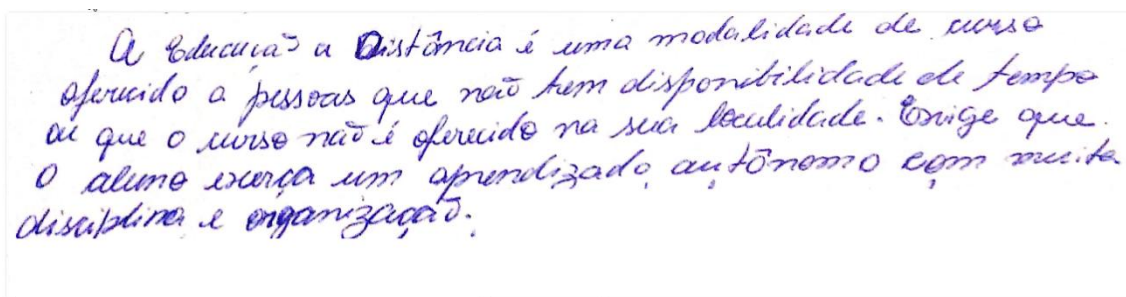 A Educação a Distância é uma modalidade de curso
oferecido a pessoas que não tem disponibilidade de tempo
ou que o curso não é oferecido na sua localidade. Exige que
o aluno exerça um aprendizado autônomo com muita
disciplina e organização.